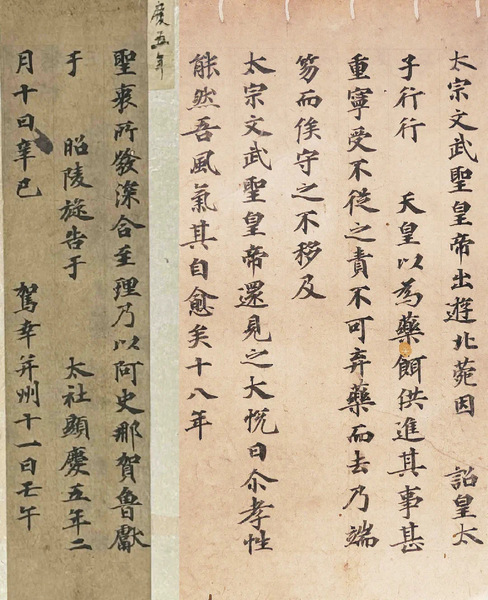 太宗文武聖皇帝出遊北苑因 詔皇太
子行行 天皇以為藥餌供進其事甚
重寧受不從之責不可弃藥而去乃端
笏而俟守之不移及
太宗文武聖皇帝還見之大悅曰尒孝性
能然吾風氣其自愈矣十八年
慶五年
聖衷所發深合至理乃以阿史那賀魯獻
于 昭陵旋告于 太社顯慶五年二
月十日辛巳 駕幸并州十一日壬午